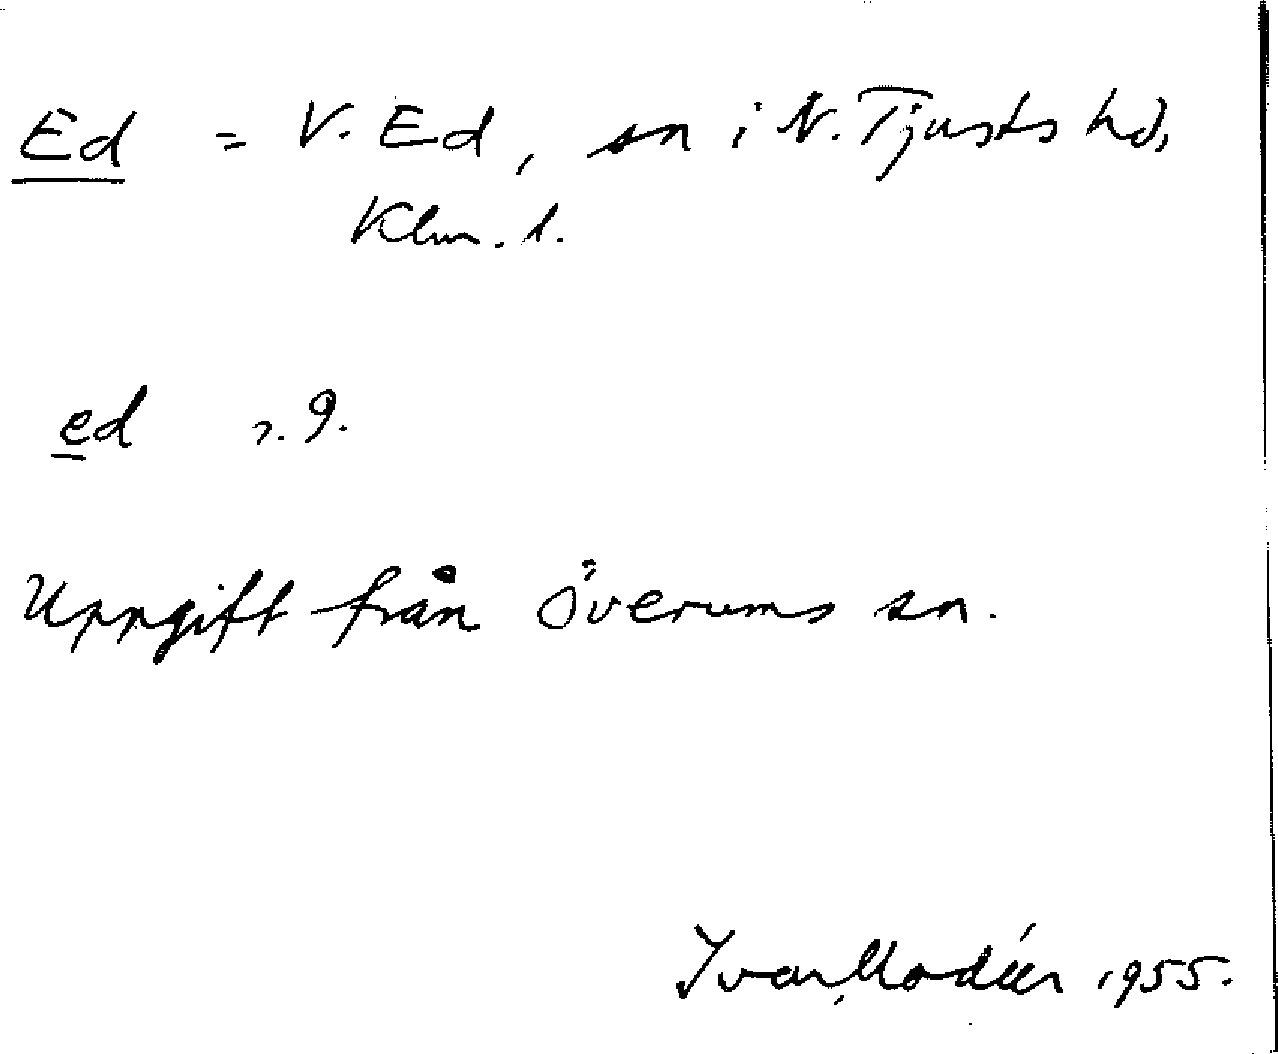 Ed = V. Ed, sn i N. Tjusts hd,
Klm. l.
ed r. 9.
Uppgift från Överums sn.
Ivar Modéer 1955.